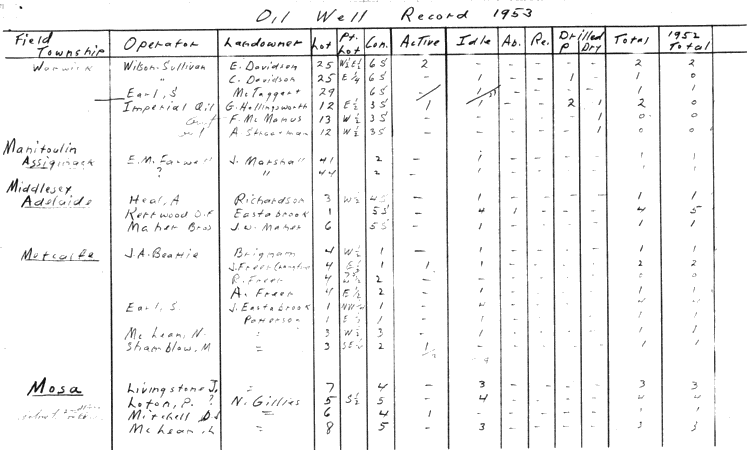 Oil Well Record 1953
Field Township Operator Landowner Lot Pt. Lot Con. Active Idle Ab. Re. Drilled P Dry Total 1952 Total
Warwick Wilson-Sullivan E. Davidson 25 W½E½ 6 S 2 - - - - - 2 2
" C. Davidson 25 E¼ 6 S - 1 - - 1 - 1 0
Earl, S McTaggart 29 6 S - 1 - - - - 1 1
Imperial Oil G. Hollingsworth 12 E½ 3 S 1 1 - - 2 1 2 0
F. McManus 13 W½ 3 S - - - - - 1 0 0
A. 12 W½ 3 S - - - - - 1 0 0
Manitoulin
Assiginack E.M. Farwell J. Marshall 41 2 - 1 - - - - 1 1
? " 44 2 - 1 - - - - 1 1
Middlesex
Adelaide Heal, A Richardson 3 W½ 4 S - 1 - - - - 1 1
Kerrwood D.F Eastabrook 1 5 S - 4 1 - - - 4 5
Maher Bros J.W. Maher 6 5 S - 1 - - - - 1 1
Metcalfe J.A. Beattie Brigham 4 W½ 1 - 1 - - - - 1 1
J. Freer 4 E½ 1 1 1 - - - - 2 2
R. Freer 4 2 - - - - - -
A. Freer 4 E½ 2 - 1 - - - - 1 1
Earl, S. J. Eastabrook 1 1 - 4 - - - - 4 4
Patterson 1 E½ 1 - 1 - - - - 1 1
McLean, N. " 3 W½ 3 - 1 - - - - 1 1
Shamblaw, M = 3 SE¼ 2 1 - - - - - 1 1
Mosa Livingstone J. " 7 4 - 3 - - - - 3 3
Loton, P. ? N. Gillies 5 S½ 5 - 4 - - - - 4 4
Mitchell D S = 6 4 1 - - - - - 1 1
McLean = 8 5 - 3 - - - - 3 3